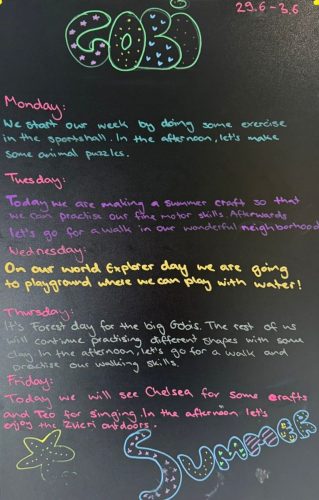 29.6-3.6
GOBI
Monday:
We start our week by doing some exercise
in the sportshall. In the afternoon, let's make
some animal puzzles.
Tuesday:
Today we are making a summer craft so that
we can practise our fine motor skills. Afterwards
let's go for a walk in our wonderful neighborhood
Wednesday:
On our world Explorer day we are going
to playground where we can play with water!
Thursday:
It's Forest day for the big Gobis. The rest of us
will continue practising different shapes with some
clay. In the afternoon, let's go for a walk and
practise our walking skills.
Friday:
Today we will see Chelsea for some crafts
and Teo for singing. In the afternoon let's
enjoy the Zvicri outdoors.
SUMMER